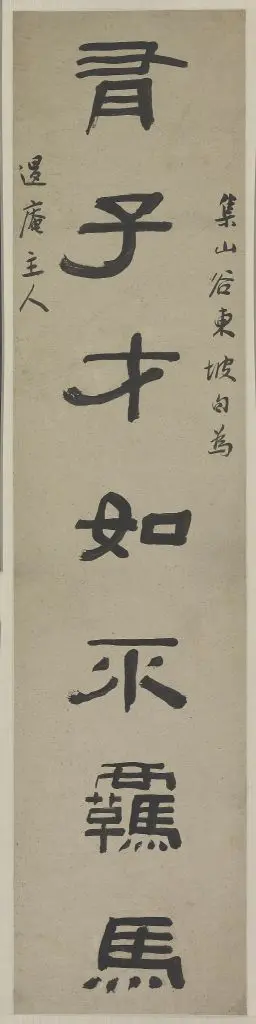 集山谷東坡句為
有子才如不羈馬
庵主人